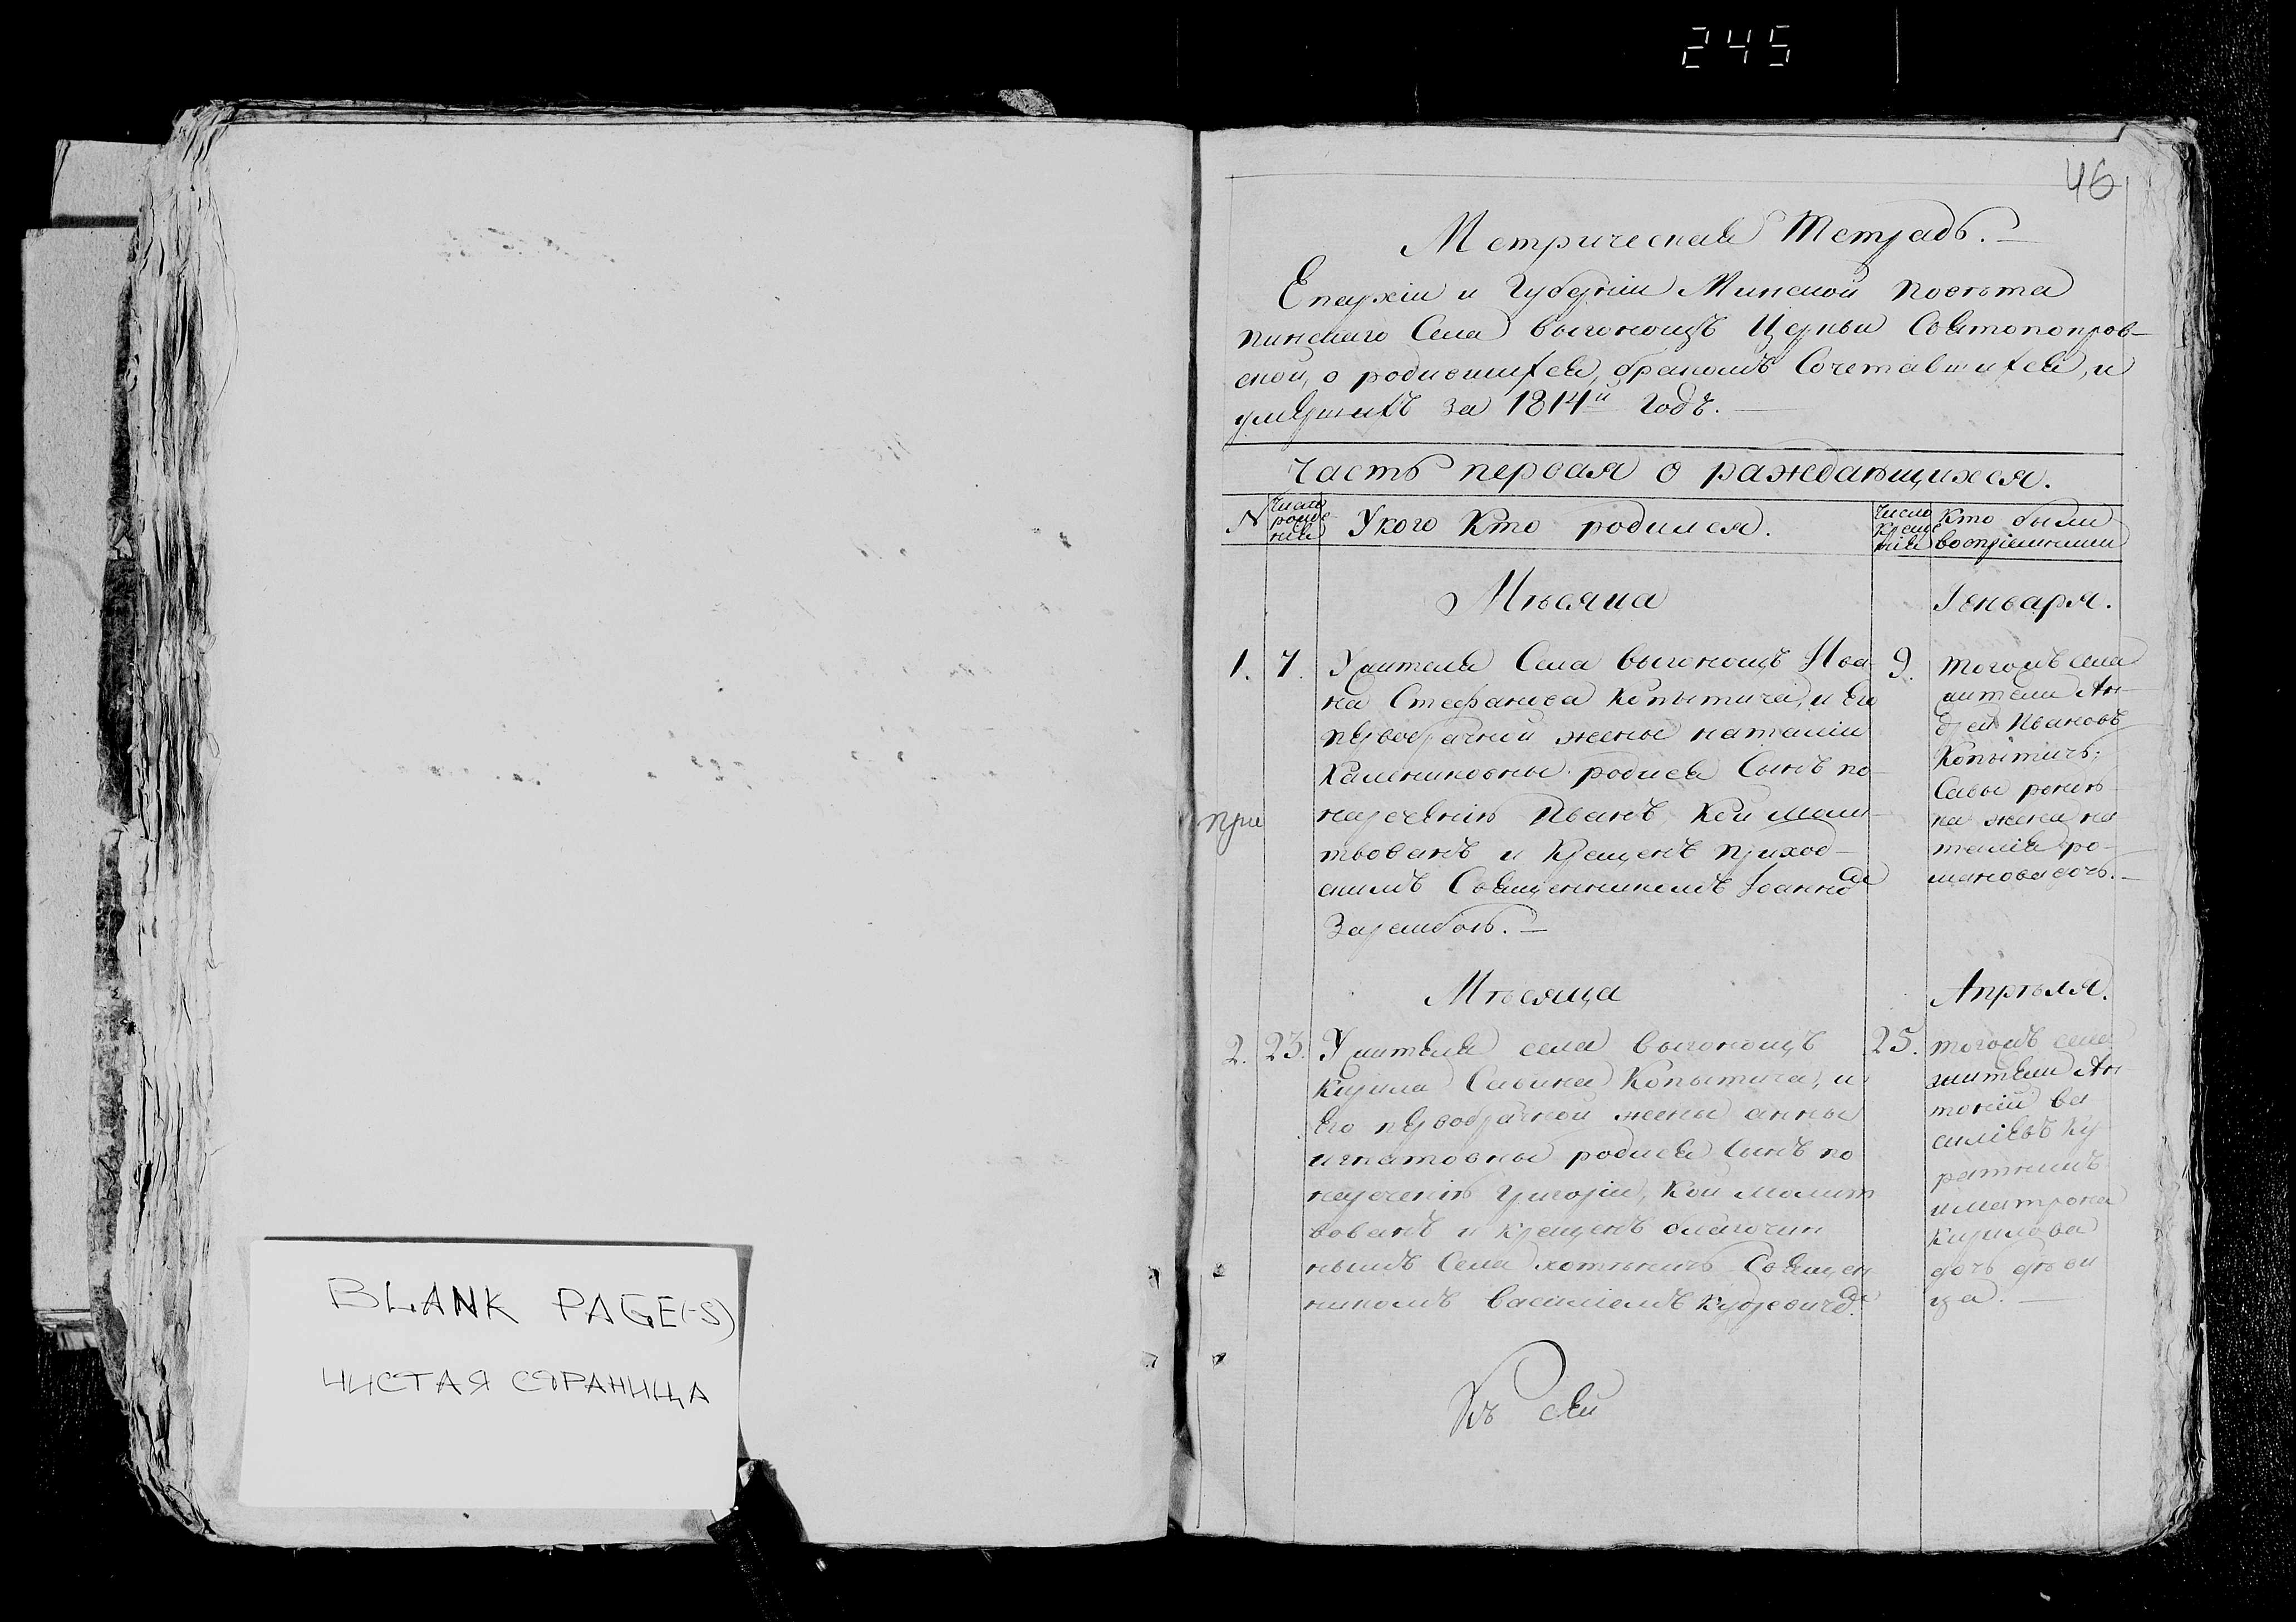 245
46
Метрическая Тетрадь.
Епархіи и Губерніи Минской повѣта
пинскаго Села выгонощъ Церкви Святопокров-
ской, о родившихся, бракомъ Сочетавшихся, и
умершихъ за 1814й годъ.
Часть первая о раждающихся.
N
Число рожденія
Укого Кто родился.
Число Крещенія
Кто были воспріемники
Мѣсяца
Іенваря.
1. 7.
Ужителя Села выгонощъ Ива-
на Стефанова Копытича, и Его
первобрачной жены наталіи
Калениковны родися Сынъ по-
нареченію Иванъ, Кой молит-
твованъ и Крещенъ приход-
скимъ Священникомъ Іоанномъ
Зарембою.
при
9.
тогожъ села
жители Ан-
дрей Ивановъ
Копытичъ;
Савы
на жена на
талія ро-
манова дочь.
Мѣсяца
Апрѣля.
2. 23.
Ужителя села выгонощъ
Кирила Савина Копытича, и
Его первобрачной жены анны
игнатовны родися Сынъ по
нареченію григорій, Кой молит
вованъ и крещенъ благочин
нымъ Села хотыничъ Священ
никомъ василіемъ
25.
тогожъ села
жители Ан-
тоній ва
силіевъ Ку
и матрона
Кирилова
дочь дѣви
ца.
Къ сей
BLANK PAGE(-S)
ЧИСТАЯ СТРАНИЦА